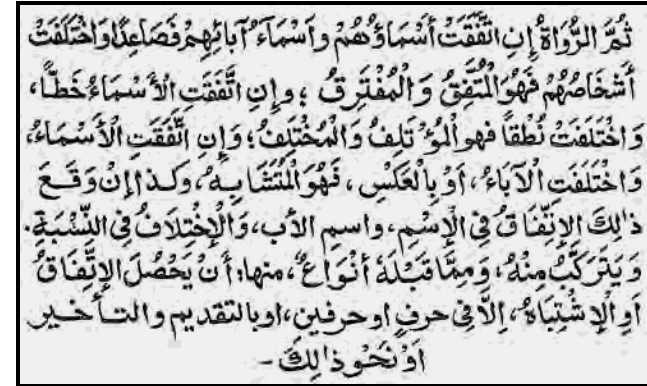 ثُمَّ الرُّوَاةُ إِنِ اتَّفَقَتْ أَسْمَاؤُهُمْ وأَسْمَاءُ آبائِهِمْ فَصَاعِدًا وَاخْتَلَفَتْ
أَشْخَاصُهُمْ فَهُوَ الْمُتَّفِقُ وَالْمُفْتَرِقُ ؛ وإِنِ اتَّفَقَتِ الْأَسْمَاءُ خَطًّا،
وَاخْتَلَفَتْ نُطْقاً فهو الْمُؤْتَلِفُ وَالْمُخْتَلِفُ؛ وَإِنِ اتَّفَقَتِ الْأَسْمَاءُ،
وَاخْتَلَفَتِ الْآبَاءُ، اَوْ بِالْعَكْسِ، فَهُوَ الْمُتَشَابِهُ، وَكَذا إِنْ وَقَعَ
ذٰلِكَ الاِتِّفَاقُ فِي الْإِسْمِ، واسمِ الأَب، وَالْإِخْتِلَافُ فِي النِّسْبَةِ.
وَيَتَرَكَّبُ مِنْهُ، وَمِمَّا قَبْلَهُ أَنْوَاعٌ، منها؛ أَنْ يَحْصُلَ الاِتِّفَاقُ
أَوِ الْاِشْتِبَاهُ، إِلَّا فِي حرفٍ او حرفين، اوبالتقديم والتـأخـير
اَوْ نَحْوِ ذٰلِكَ -